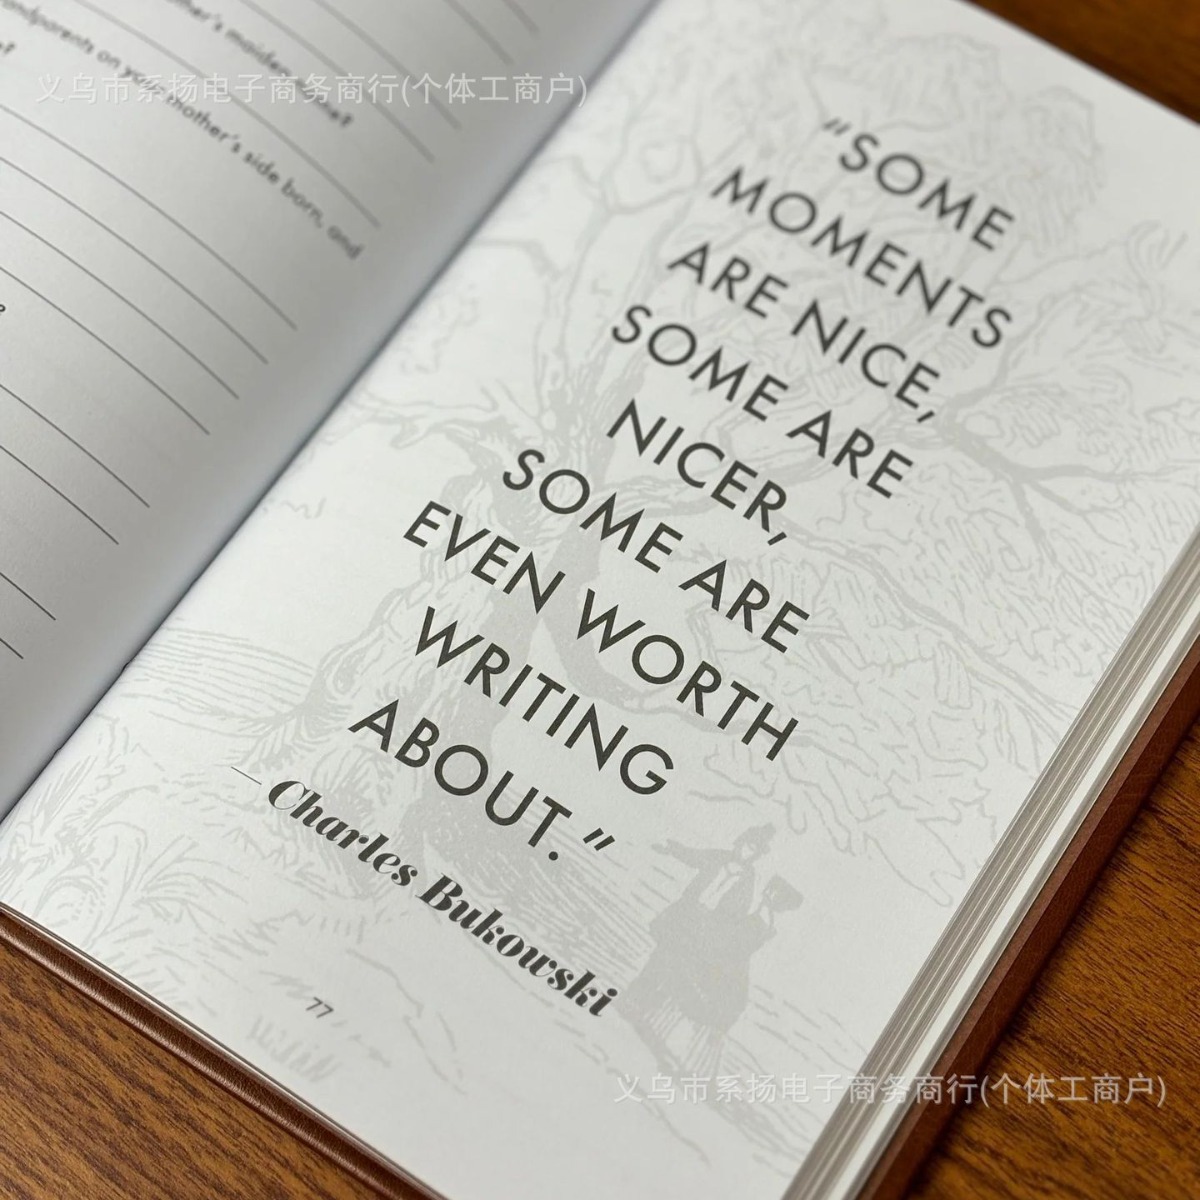 other's maiden name?
grandparents on your mother's side born, and
义乌市系扬电子商务商行(个体工商户)
"SOME
MOMENTS
ARE NICE,
SOME ARE
NICER,
SOME ARE
EVEN WORTH
WRITING
ABOUT."
— Charles Bukowski
77
义乌市系扬电子商务商行(个体工商户)